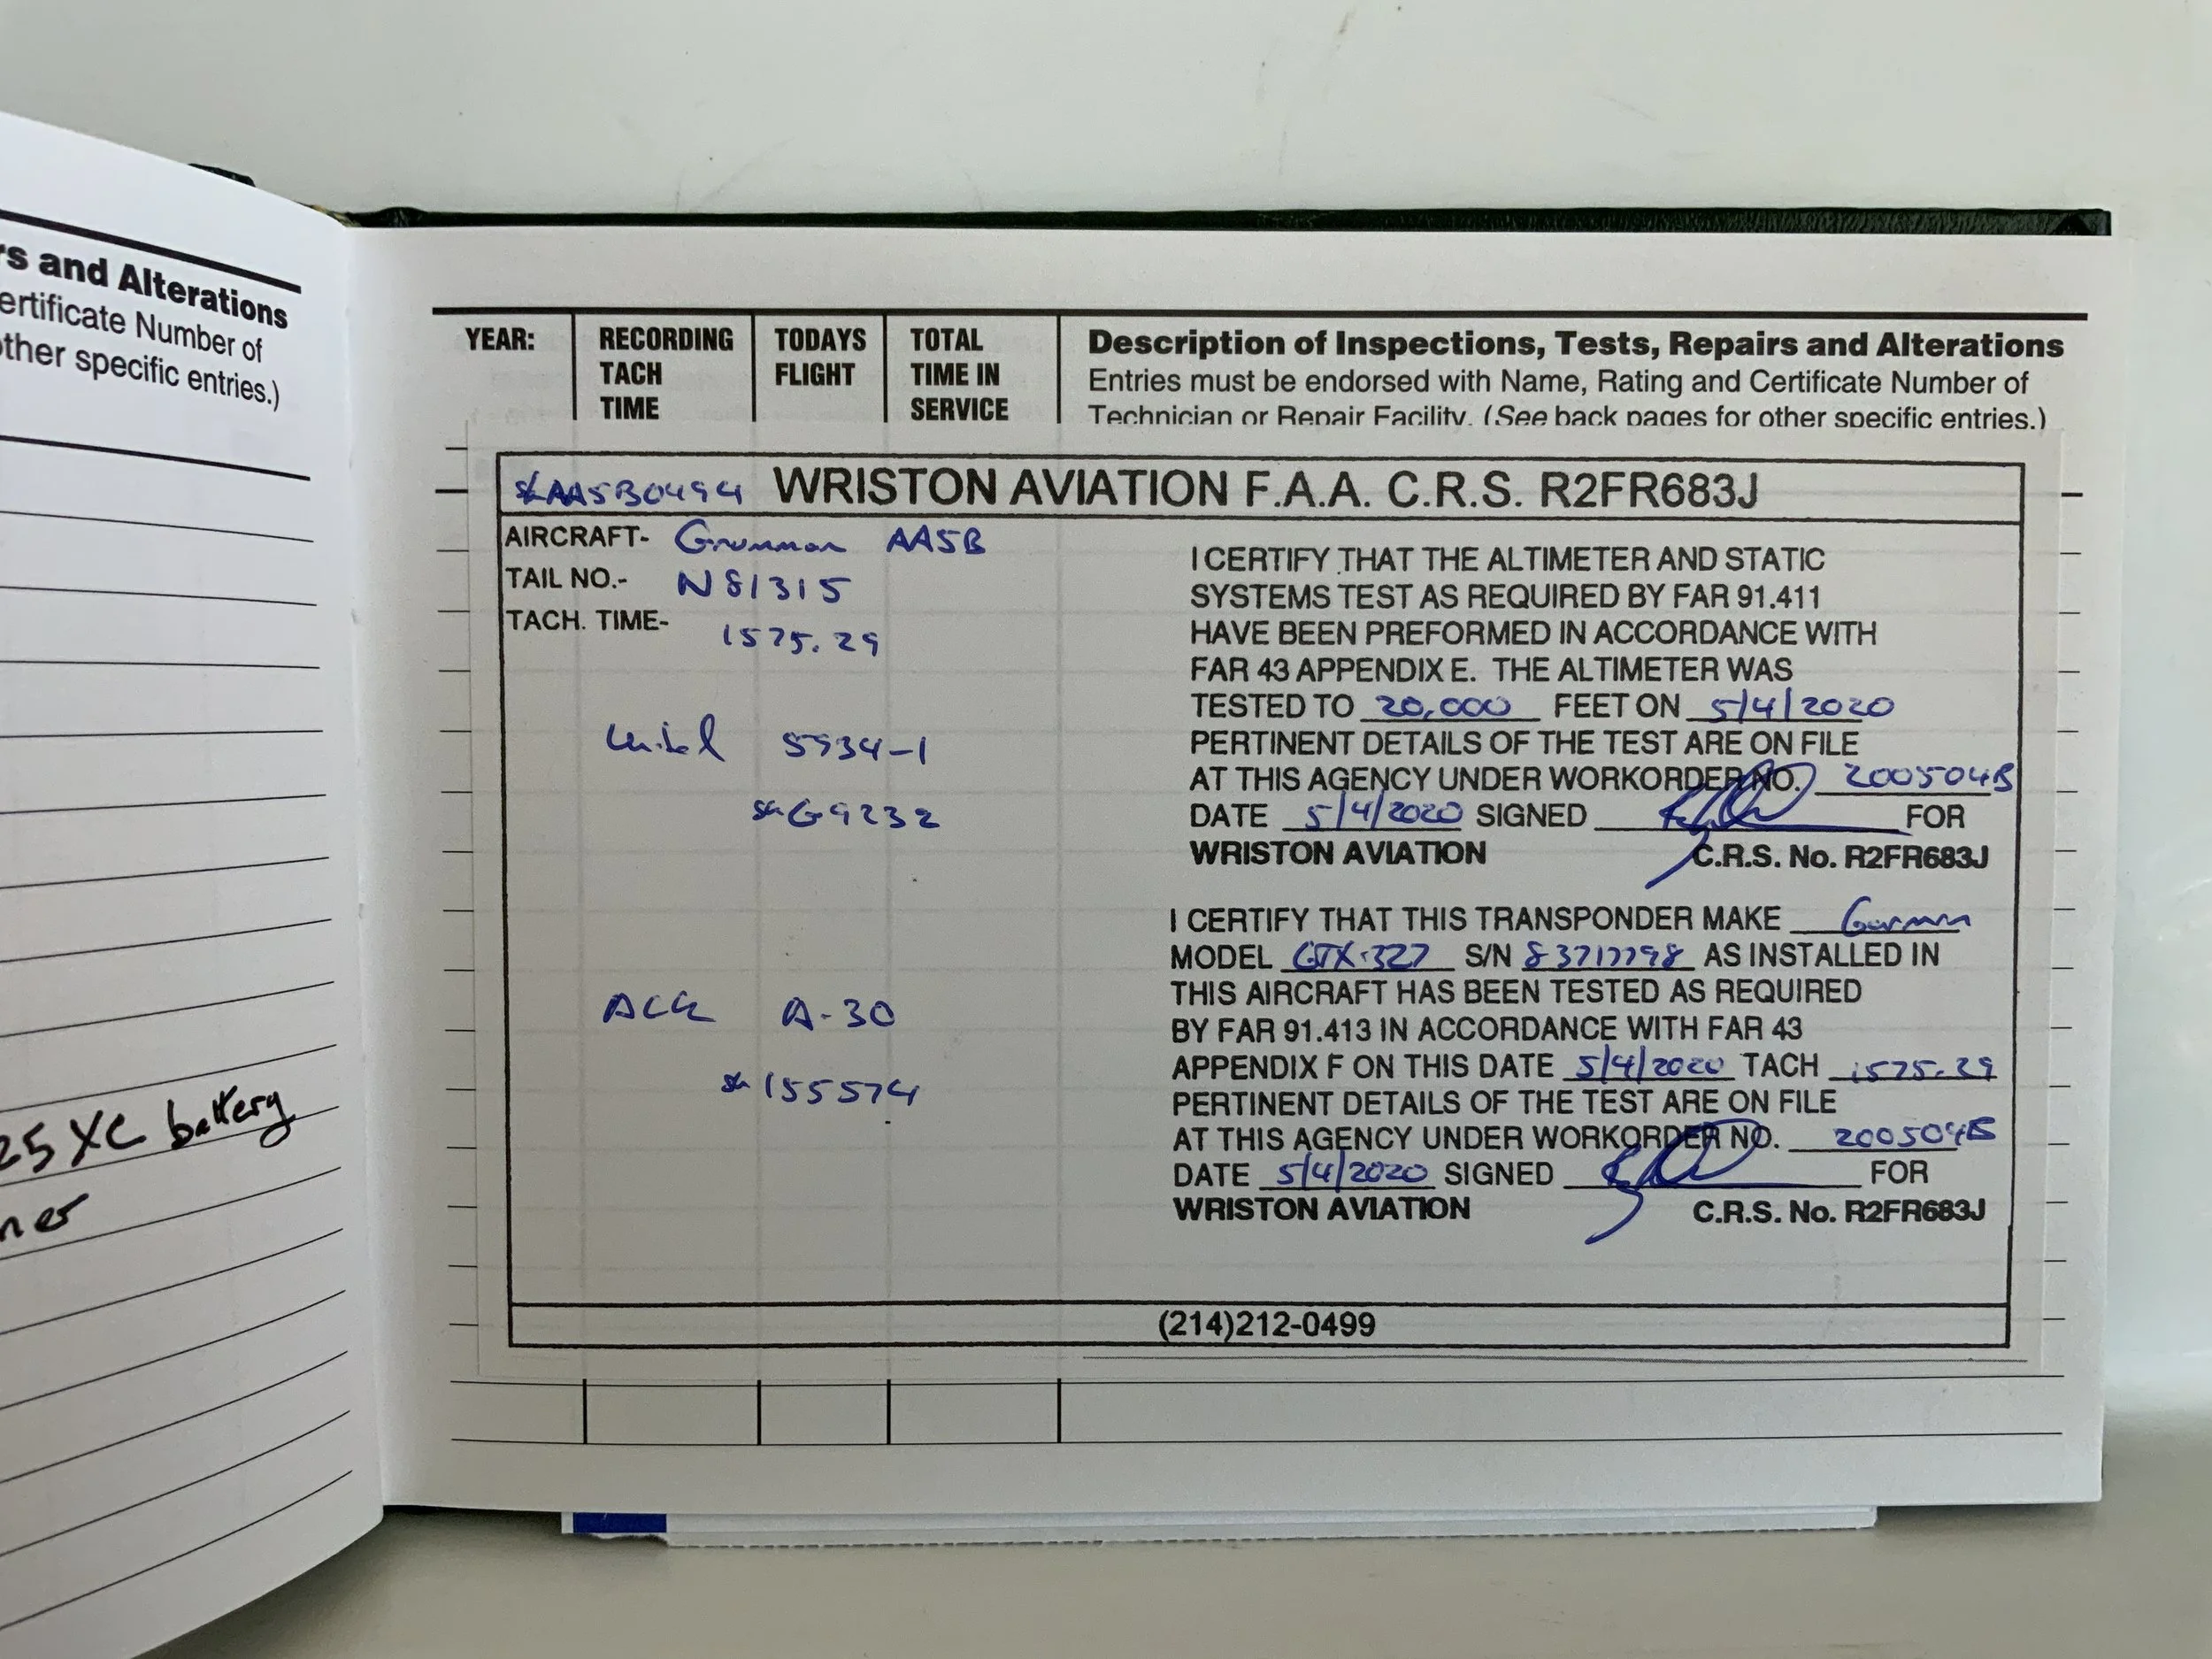 rs and Alterations
ertificate Number of
other specific entries.)
25 XC battery
ner
YEAR:
RECORDING TACH TIME
TODAYS FLIGHT
TOTAL TIME IN SERVICE
Description of Inspections, Tests, Repairs and Alterations
Entries must be endorsed with Name, Rating and Certificate Number of
Technician or Repair Facility. (See back pages for other specific entries.)
AA5B0494 WRISTON AVIATION F.A.A. C.R.S. R2FR683J
AIRCRAFT- Grumman AA5B
TAIL NO.- N81315
TACH. TIME- 1575.29
United 5934-1
G9232
ACK A-30
155574
I CERTIFY THAT THE ALTIMETER AND STATIC
SYSTEMS TEST AS REQUIRED BY FAR 91.411
HAVE BEEN PREFORMED IN ACCORDANCE WITH
FAR 43 APPENDIX E. THE ALTIMETER WAS
TESTED TO 20,000 FEET ON 5/4/2020
PERTINENT DETAILS OF THE TEST ARE ON FILE
AT THIS AGENCY UNDER WORKORDER NO. 200504B
DATE 5/4/2020 SIGNED FOR
WRISTON AVIATION C.R.S. No. R2FR683J
I CERTIFY THAT THIS TRANSPONDER MAKE Garmin
MODEL GTX-327 S/N 83717798 AS INSTALLED IN
THIS AIRCRAFT HAS BEEN TESTED AS REQUIRED
BY FAR 91.413 IN ACCORDANCE WITH FAR 43
APPENDIX F ON THIS DATE 5/4/2020 TACH 1575.29
PERTINENT DETAILS OF THE TEST ARE ON FILE
AT THIS AGENCY UNDER WORKORDER NO. 200504B
DATE 5/4/2020 SIGNED FOR
WRISTON AVIATION C.R.S. No. R2FR683J
(214)212-0499